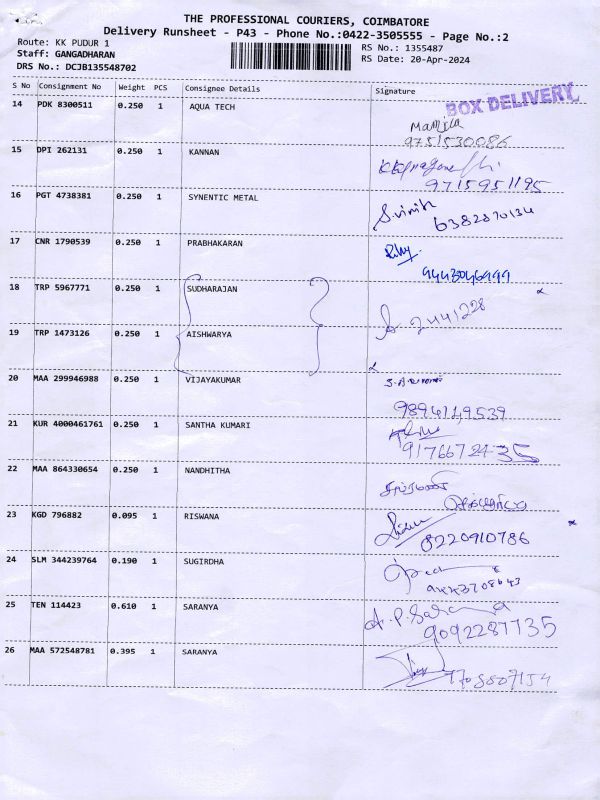 THE PROFESSIONAL COURIERS, COIMBATORE
Delivery Runsheet - P43 - Phone No.:0422-3505555 - Page No.:2
Route: KK PUDUR 1
RS No.: 1355487
Staff: GANGADHARAN
RS Date: 20-Apr-2024
DRS No.: DCJB135548702
S No Consignment No Weight PCS Consignee Details Signature
BOX DELIVERY
14 PDK 8300511 0.250 1 AQUA TECH
9751530086
15 DPI 262131 0.250 1 KANNAN
9715951195
16 PGT 4738381 0.250 1 SYNENTIC METAL
6382870134
17 CNR 1790539 0.250 1 PRABHAKARAN
9443046999
18 TRP 5967771 0.250 1 SUDHARAJAN
2441228
19 TRP 1473126 0.250 1 AISHWARYA
20 MAA 299946988 0.250 1 VIJAYAKUMAR
21 KUR 4000461761 0.250 1 SANTHA KUMARI
22 MAA 864330654 0.250 1 NANDHITHA
23 KGD 796882 0.095 1 RISWANA
8220910786
24 SLM 344239764 0.190 1 SUGIRDHA
25 TEN 114423 0.610 1 SARANYA
9092287735
26 MAA 572548781 0.395 1 SARANYA